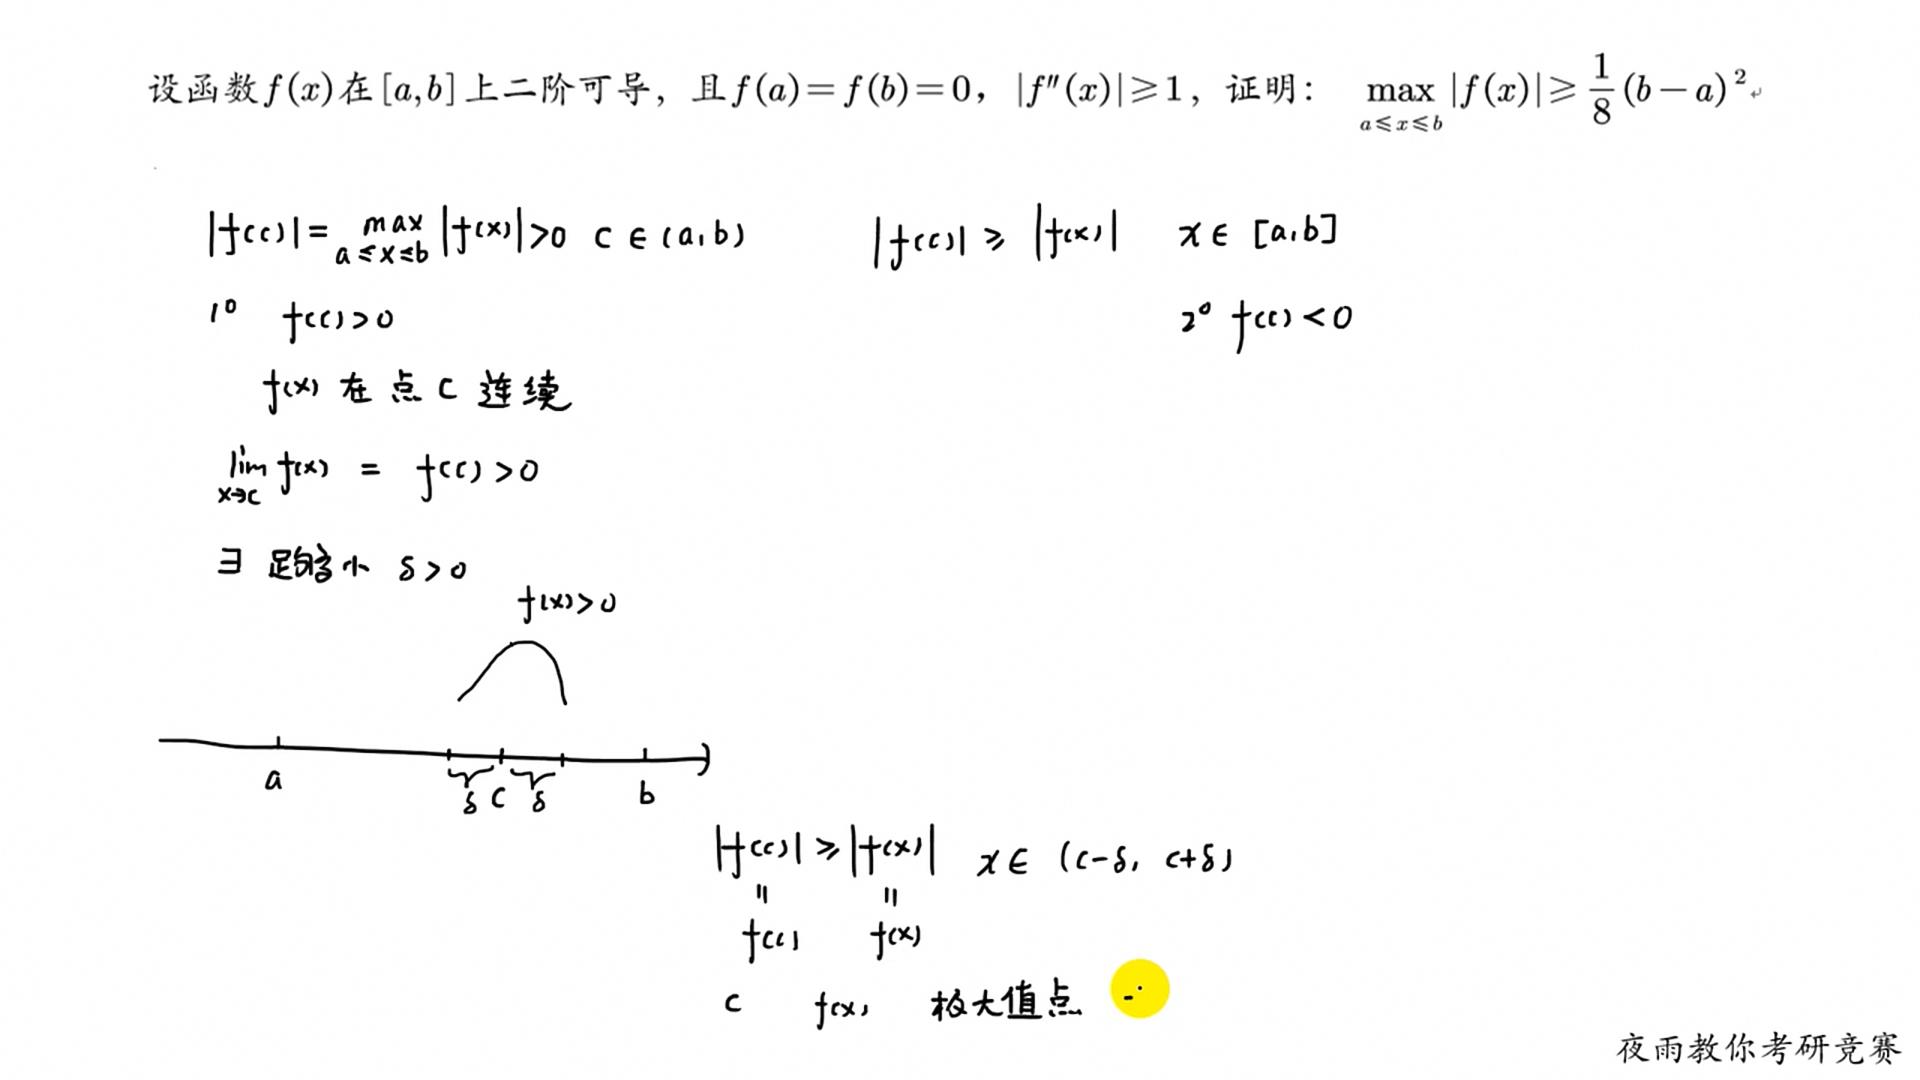 设函数f(x)在[a,b]上二阶可导，且f(a)=f(b)=0，|f″(x)|≥1，证明： max |f(x)|≥1/8(b−a)²
a≤x≤b
|f(c)|= max |f(x)|>0 c∈(a,b)
a≤x≤b
|f(c)|≥|f(x)| x∈[a,b]
1° f(c)>0
2° f(c)<0
f(x) 在点c连续
lim f(x) = f(c)>0
x→c
∃ 足够小 δ>0
f(x)>0
a
δ c δ
b
|f(c)|≥|f(x)| x∈(c-δ, c+δ)
= =
f(c) f(x)
c f(x) 极大值点
夜雨教你考研竞赛